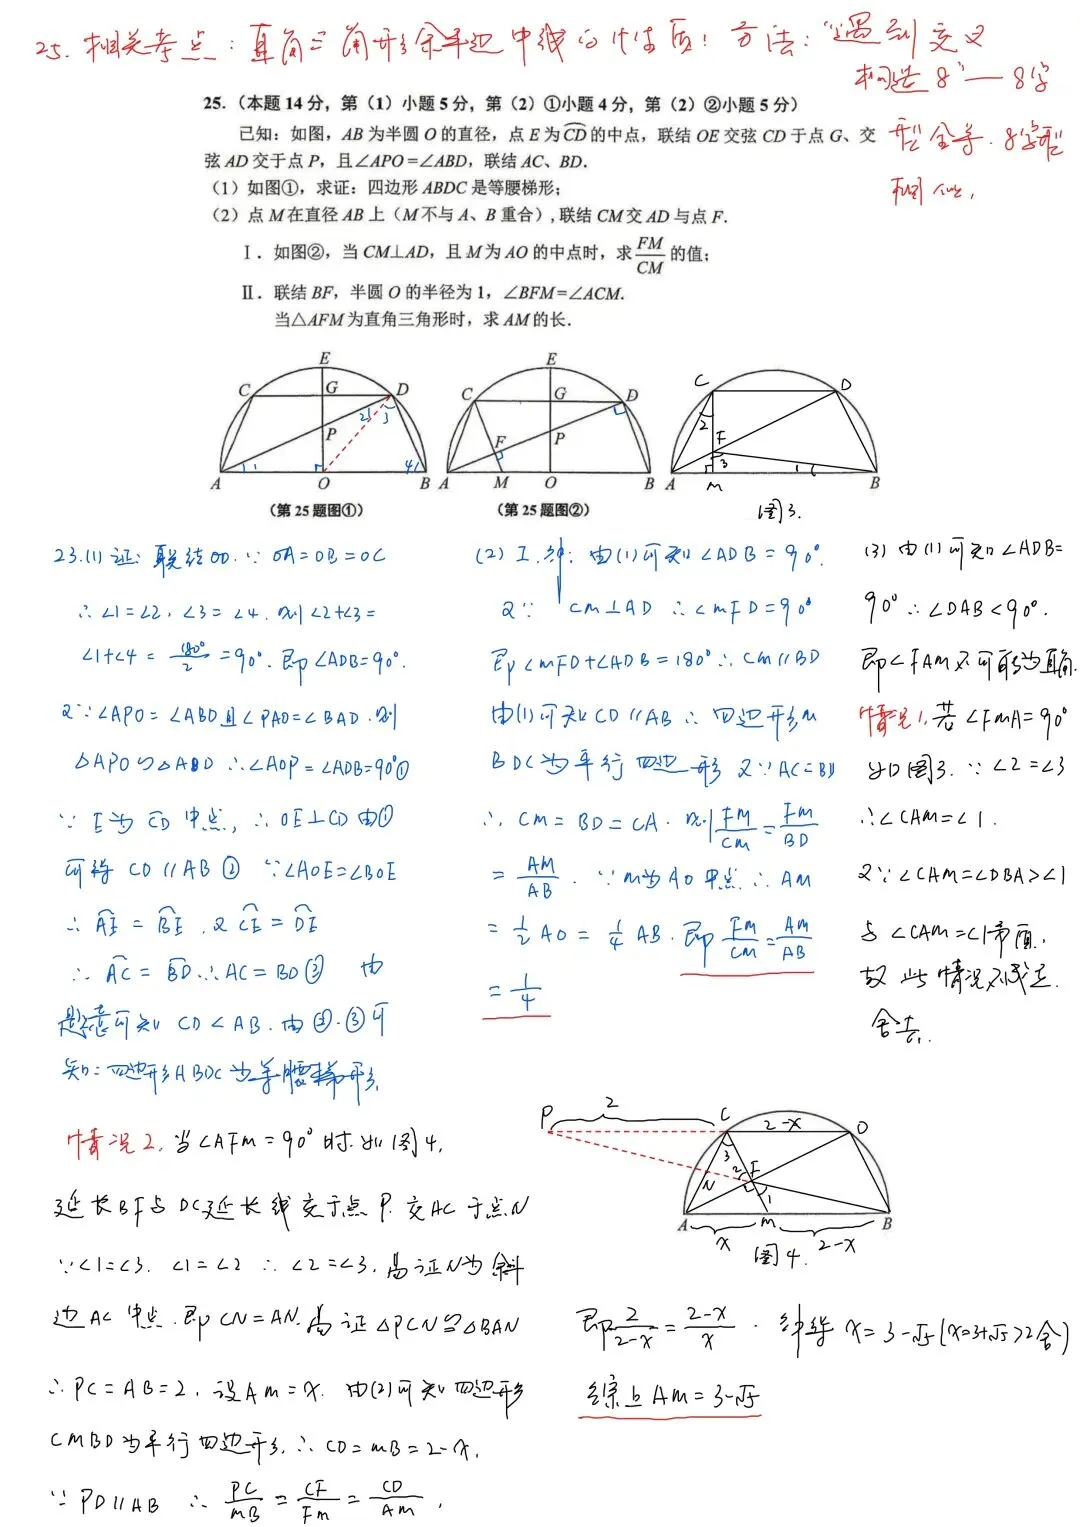 25. 相关考点：直角三角形斜边中线的性质！方法："遇到交叉
构造8"—8字
型全等.8字型
相似.
25.（本题14分，第（1）小题5分，第（2）①小题4分，第（2）②小题5分）
已知：如图，AB为半圆O的直径，点E为CD的中点，联结OE交弦CD于点G、交
弦AD交于点P，且∠APO=∠ABD，联结AC、BD.
（1）如图①，求证：四边形ABDC是等腰梯形；
（2）点M在直径AB上（M不与A、B重合）,联结CM交AD与点F.
Ⅰ．如图②，当CM⊥AD，且M为AO的中点时，求FM/CM的值；
Ⅱ．联结BF，半圆O的半径为1，∠BFM=∠ACM.
当△AFM为直角三角形时，求AM的长.
E
C G D
2 3
P
1 4
A O B
（第25题图①）
E
C G D
F P
A M O B
（第25题图②）
C D
2
F
3 1
A M B
图3.
23.(1) 证: 联结OD. ∵ OA=OB=OC
∴∠1=∠2, ∠3=∠4. 则∠2+∠3=
∠1+∠4=180°/2=90°. 即∠ADB=90°.
又∵∠APO=∠ABD且∠PAO=∠BAD.则
△APO∽△ABD ∴∠AOP=∠ADB=90°①
∵ E为CD中点, ∴ OE⊥CD 由①
可得 CD∥AB ② ∵∠AOE=∠BOE
∴ AE=BE.又CE=DE
∴ AC=BD∴AC=BD③ 由
题意可知 CD<AB.由②.③可
知:四边形ABDC为等腰梯形.
(2) Ⅰ.解: 由(1)可知∠ADB=90°.
又∵ CM⊥AD ∴∠MFD=90°
即∠MFD+∠ADB=180°∴CM∥BD
由(1)可知CD∥AB∴四边形M
BDC为平行四边形 又∵AC=BD
∴ CM=BD=CA. 则FM/CM=FM/BD
=AM/AB. ∵M为AO中点.∴AM
=1/2AO=1/4AB.即FM/CM=AM/AB
=1/4
(3) 由(1)可知∠ADB=
90°∴∠DAB<90°.
即∠FAM不可能为直角.
情况1.若∠FMA=90°
如图3.∵∠2=∠3
∴∠CAM=∠1.
又∵∠CAM=∠DBA>∠1
与∠CAM=∠1矛盾.
故此情况不成立.
舍去.
情况2.当∠AFM=90°时.如图4.
延长BF与DC延长线交于点P.交AC于点N
∵∠1=∠3. ∠1=∠2 ∴∠2=∠3.易证N为斜
边AC中点.即CN=AN.易证△PCN≌△BAN
∴PC=AB=2.设AM=x. 由(2)可知四边形
CMBD为平行四边形.∴CD=MB=2-x.
∵PD∥AB ∴PC/MB=CF/FM=CD/AM.
P 2 C 2-x D
3
N 2 F
1
A M B
x 2-x
图4.
即2/2-x=2-x/x. 解得x=3-√5(x=3+√5>2舍)
综上AM=3-√5